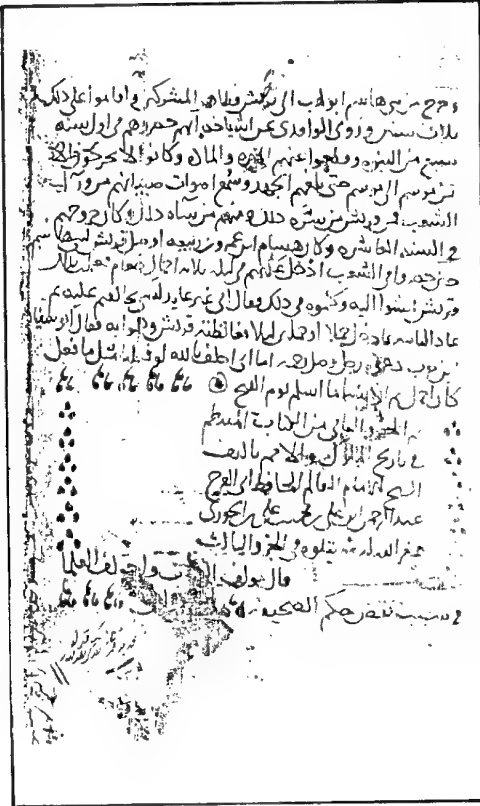 وخرج من بني هاشم ابو لهب الى قريش فظاهر المشركين واقاموا على ذلك
ثلاث سنين وروى الواقدي عن اشياخه انهم حصروهم في اول سنة
سبع من النبوه وقطعوا عنهم الميره والماده وكانوا لا يخرجون الا
من موسم الى موسم حتى بلغهم الجهد وسمع اصوات صبيانهم من ورآ
الشعب فمن قريش من سره ذلك ومنهم من سآه ذلك وكان خروجهم
في السنه العاشره وكان هشام ابن عمرو بن ربيعه اوصل قريش لبني هاشم
حين حصروا في الشعب ادخل عليهم في ليله ثلاثه احمال طعام فعلمت بذلك
قريش فمشوا اليه وكلموه في ذلك فقال اني غير عايد لشي خالفكم عليه ثم
عاد الثانيه فادخل حملا او حملين ليلا فغالظته قريش وهموا به فقال ابو سفيان
بن حرب دعوه رجل وصل رحمه اما اني احلف بالله لو فعلنا مثل ما فعل
كان اجمل ثم ان هشاما اسلم يوم الفتح
تم الجزو الثاني من الكتاب المنتظم
في تاريخ الملوك والامم تاليف
الشيخ الامام العالم الحافظ ابي الفرج
عبد الرحمن ابن علي بن محمد بن علي بن الجوزي
غفر الله له يتلوه في الجزو الثالث
قال مولف الكتاب واختلف العلما
في سبب نقض حكم الصحيفه